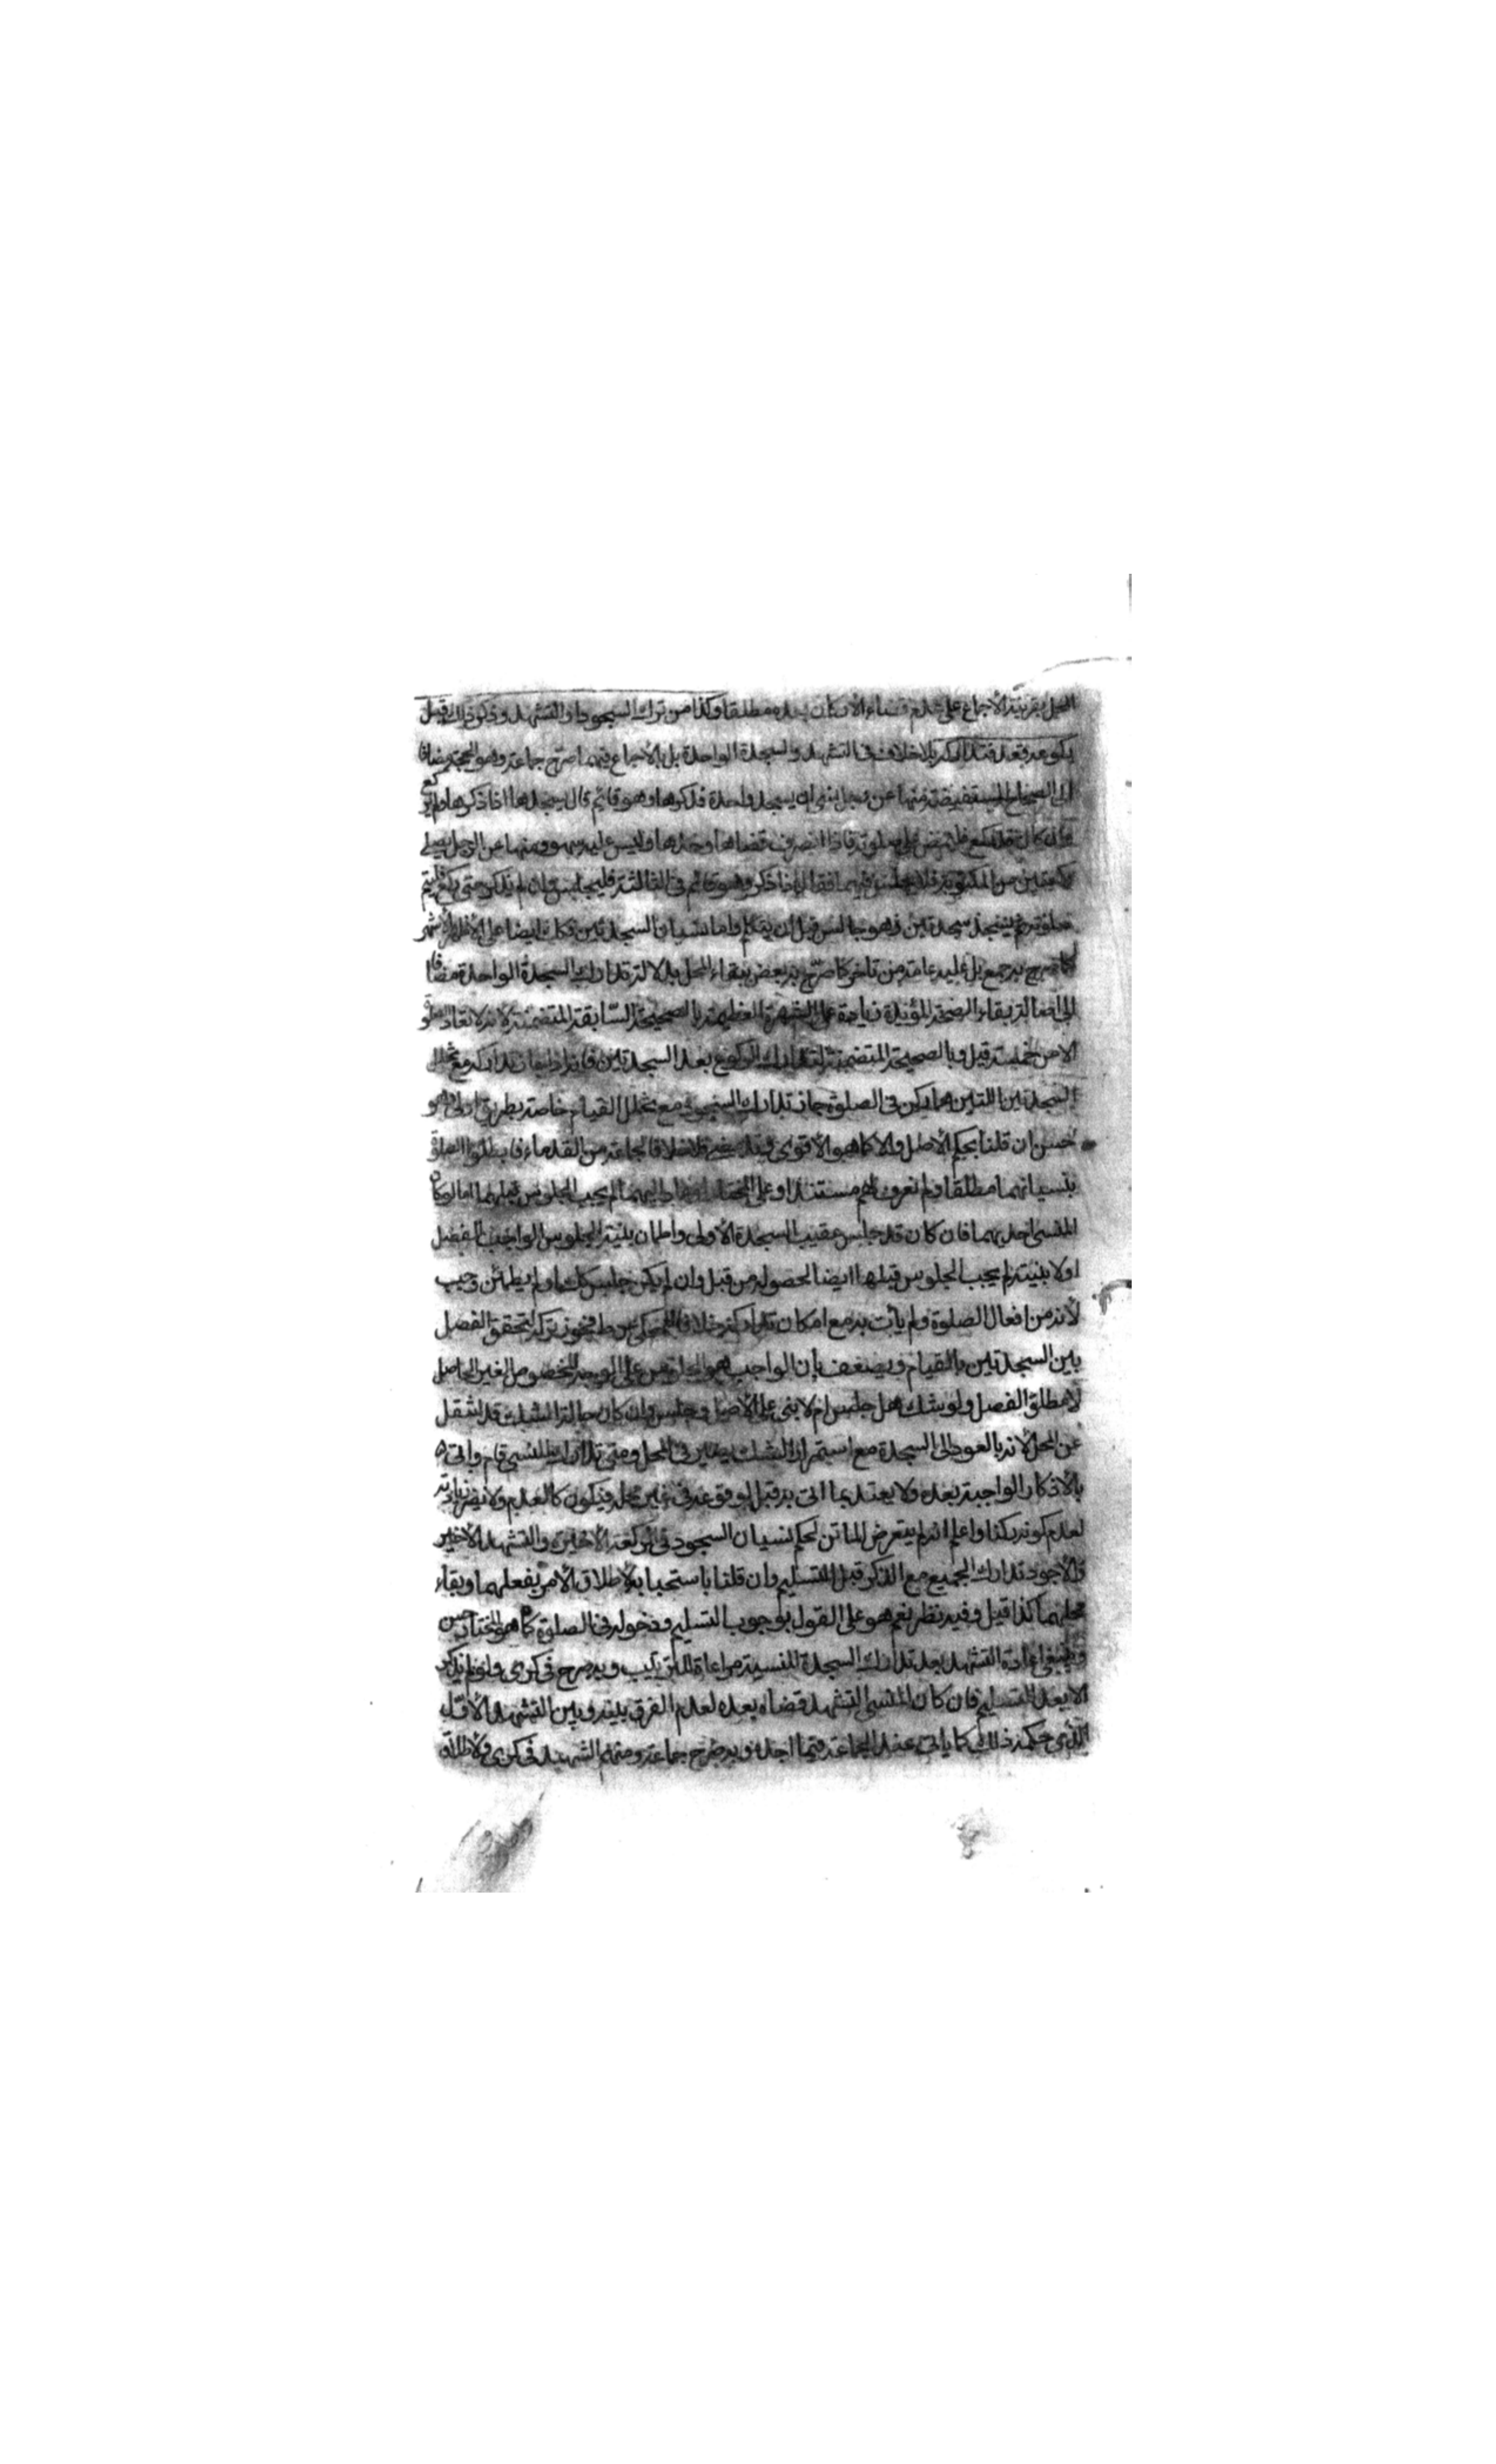 المحل بقرينة الأجماع على عدم قضاء الأركان بعده مطلقا وكذا من ترك السجود او التشهد وذكر ذلك قبل
ركوعه قعد فتداركه بلا خلاف في التشهد والسجدة الواحدة بل بالأجماع فيهما صرّح جماعة وهو الحجة مضافا
الى الصحاح المستفيضة منها عن رجل نسى ان يسجد واحدة فذكرها وهو قائم قال يسجدها اذا ذكرها ولم يركع
وان كان قد ركع فليمض على صلوته فاذا انصرف قضاها وحدها وليس عليه سهو ومنها عن الرجل يصلي
ركعتين من المكتوبة فلا يجلس فيهما فقال ان ذكر وهو قائم في الثالثة فليجلس وان لم يذكر حتى ركع فليتم
صلوته ثم يسجد سجدتين وهو جالس قبل ان يتكلم واما نسيان السجدتين فكك ايضا على الأظهر الأشهر
كما صرح به جمع بل عليه عامة من تاخر كما صرّح به بعض لبقاء المحل بدلالة تدارك السجدة الواحدة مضافا
الى اصالة بقاء الصحة المؤيدة زيادة على الشهرة العظيمة بالصحيحة السّابقة المتضمنة لانه لا تعاد الصلوة
الا من خمسة قيل وبالصحيحة المتضمنة لتدارك الركوع بعد السجدتين فانه اذا جاز تداركه مع تخلل
السجدتين اللتين هما ركن في الصلوة جاز تدارك السجود مع تخلل القيام خاصة بطريق اولى وهو
حسن ان قلنا بحكم الأصل والا كما هو الأقوى فيه خلافا لجماعة من القدماء فابطلوا الصلوة
بنسيانهما مطلقا ولم نعرف لهم مستندا وعلى المختار لم يجب الجلوس قبلهما اما لو كان
المنسى احديهما فان كان قد جلس عقيب السجدة الأولى واطمان بنية الجلوس الواجب للفصل
اولا بنية لم يجب الجلوس قبلها ايضا لحصوله من قبل وان لم يكن جلس كك او لم يطمئن وجب
لأنه من افعال الصلوة ولم يأت به مع امكان تداركه خلافا للمحكي عن ط فجوز تركه لتحقق الفصل
بين السجدتين بالقيام ويضعف بان الواجب هو الجلوس على الوجه المخصوص الغير الحاصل
لا مطلق الفصل ولو شك هل جلس ام لا بنى على الأصل وجلس وان كان حالة الشك قد انتقل
عن المحل لأنه بالعود الى السجدة مع استمرار الشك يصير في المحل ومتى تدارك المنسى قام واتى
بالأذكار الواجبة بعده ولا يعتد بما اتى به قبل لوقوعه في غير محله فيكون كالعدم ولا يضر زيادته
لعدم كونه ركنا واعلم انه لم يتعرض الماتن لحكم نسيان السجود في الركعة الأخيرة والتشهد الأخير
والأجود تدارك الجميع مع الذكر قبل التسليم وان قلنا باستحبابه لأطلاق الأمر بفعلهما وبقاء
محلهما كذا قيل وفيه نظر نعم هو على القول بوجوب التسليم ودخوله في الصلوة كما هو المختار حسن
وينبغي اعادة التشهد بعد تدارك السجدة المنسية مراعاة للترتيب وبه صرح في كرى ولو لم يذكر
الا بعد التسليم فان كان المنسى التشهد قضاه بعده لعدم الفرق بينه وبين التشهد الأول
الذي حكمه ذلك كما ياتى عند الجماعة فيما اجده وبه صرّح جماعة ومنهم الشهيد في كرى ولأطلاق